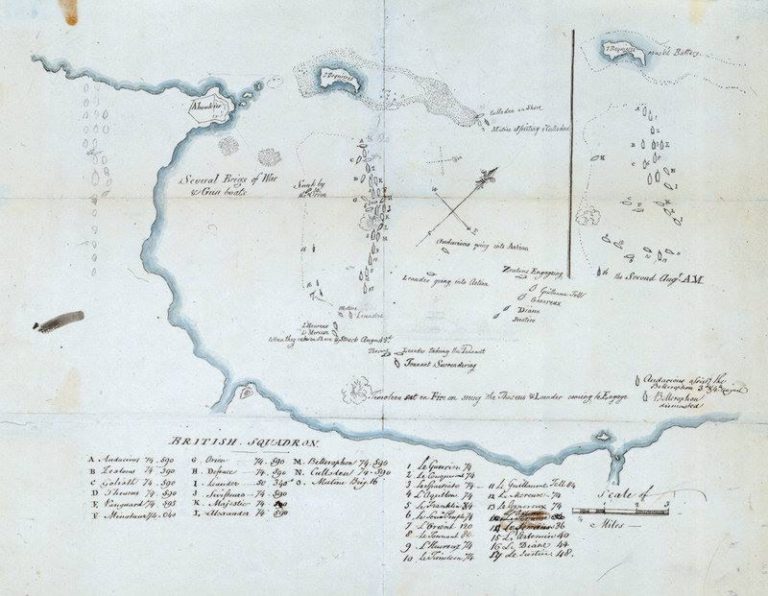 Aboukir
I Bequieres
Culloden on Shore
Mutine assisting Culloden
Several Brigs of War
& Gun boats
Sunk by
L'Orien
Audacious going into Action
Leander going into Action
Zealous Engaging
Guillaume Tell
Genereux
Diane
Justice
Mutine
Leander
L'Heureux
Le Mercure
When they ran on Shore & Struck August 2d
Theseus
Leander taking the Tonnant
Tonnant Surrendering
Timoleon set on Fire on seeing the Theseus & Leander coming to Engage
I Bequieres
Battery
the Second Augt. A.M.
Audacious assisting the
Bellerophon 3d August
Bellerophon
dismasted
BRITISH SQUADRON
A. Audacious 74 - 590
B Zealous 74 590
C Goliath 74 - 590
D Theseus 74 590
E, Vanguard 74 595
F, Minotaur 74 - 640
G. Orion 74 - 590
H. Defence 74 - 590
I - Leander 50
J - Swiftsure 74 - 590
K - Majestic 74 - 590
L, Alexander 74 - 590
M. Bellerophon 74 - 590
N. Culloden 74 - 590
O. Mutine Brig. 16
1 Le Guerrier 74
2 Le Conquerant 74
3 Le Spartiate 74
4 L'Aquillon 74
5 Le Franklin 84
6 Le Souv. Peuple 74
7 L'Orient 120
8 Le Tonnant 80
9 L'Heureux 74
10 Le Timoleon 74
11 Le Guillaume Tell 84
12 Le Mercure 74
13 Le Genereux 74
15 L'Artemise 40
16 La Diane 44
17 La Justice 48.
Scale of
1 2 3
Miles